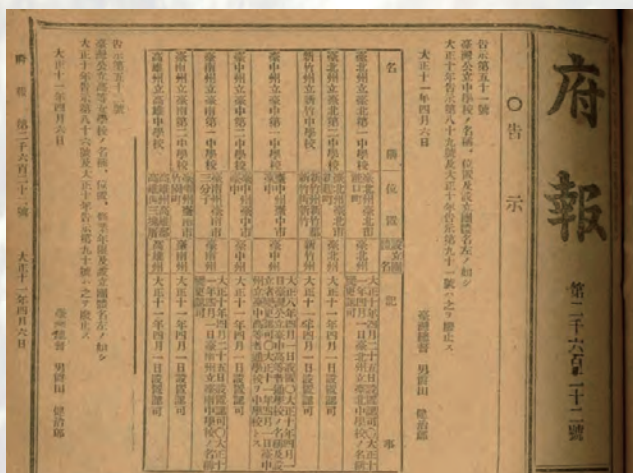 府報
第二千六百二十二號
○告示
告示第五十一號
臺灣公立中學校ノ名稱、位置及設立團體名左ノ如シ
大正十年告示第八十九號及大正十年告示第九十一號ハ之ヲ廢止ス
大正十一年四月六日
臺灣總督 男爵田 健治郎
名稱
位置
設立團體名
記事
臺北州立臺北第一中學校
臺北州臺北市龍口町
臺北州
臺北州立臺北第二中學校
臺北州臺北市
臺北州
大正十一年四月一日設置認可
新竹州立新竹中學校
新竹州新竹郡新竹街
新竹州
大正十一年四月一日設置認可
臺中州立臺中第一中學校
臺中州臺中市臺中
臺中州
臺中州立臺中第二中學校
臺中州臺中市臺中
臺中州
大正十一年四月一日設置認可
臺南州立臺南第一中學校
臺南州臺南市三分子
臺南州
臺南州立臺南第二中學校
臺南州臺南市竹園町
臺南州
大正十一年四月一日設置認可
高雄州立高雄中學校
高雄州高雄郡高雄街三塊厝
高雄州
大正十一年四月一日設置認可
告示第五十二號
臺灣公立高等女學校ノ名稱、位置、修業年限及設立團體名左ノ如シ
大正十年告示第八十六號及大正十年告示第九十號ハ之ヲ廢止ス
大正十一年四月六日
臺灣總督 男爵田 健治郎
府報 第二千六百二十二號 大正十一年四月六日